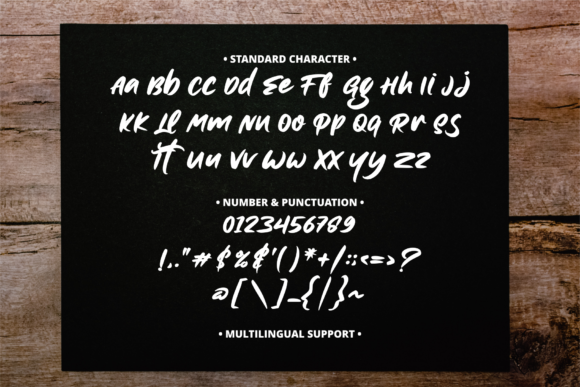 • STANDARD CHARACTER •
Aa Bb Cc Dd Ee Ff Gg Hh Ii Jj
Kk Ll Mm Nn Oo Pp Qq Rr Ss
Tt Uu Vv Ww Xx Yy Zz
• NUMBER & PUNCTUATION •
0123456789
!.,"#$%&'()*+/:;<=>?
@[\]_{|}~
• MULTILINGUAL SUPPORT •